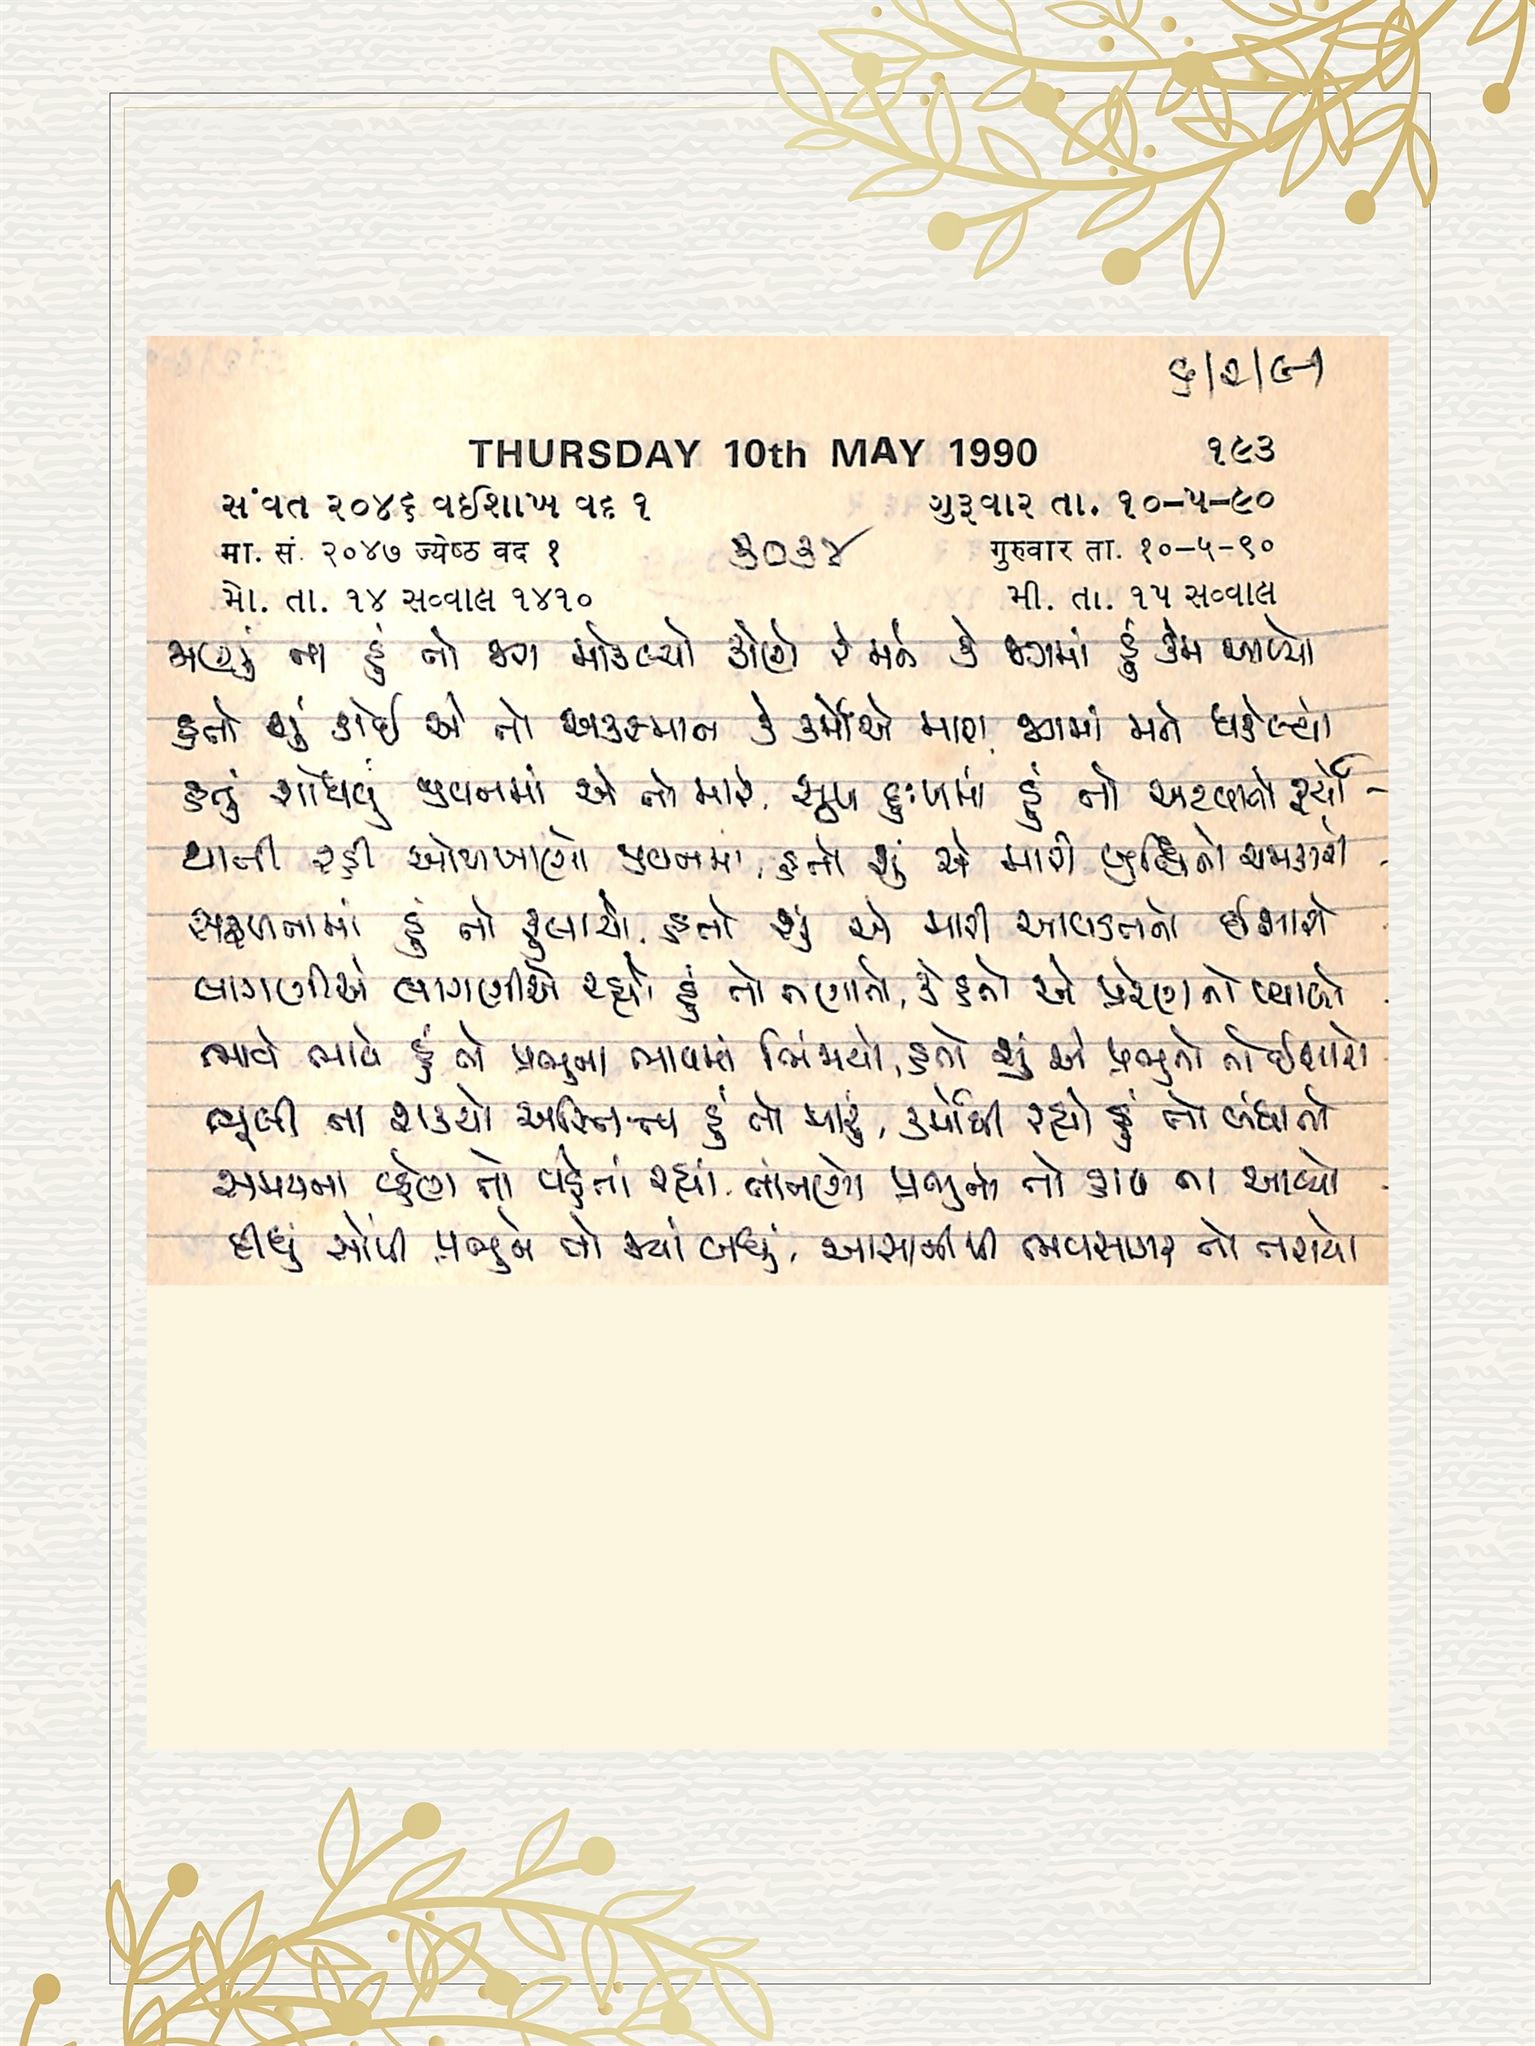 ૬/૨/૯૧
THURSDAY 10th MAY 1990 ૧૯૩
સંવત ૨૦૪૬ વઈશાખ વદ ૧ ગુરૂવાર તા. ૧૦-૫-૯૦
मा. सं. २०४७ ज्येष्ठ वद १ ૩૦૩૪ गुरुवार ता. १०-५-९०
મો. તા. ૧૪ સવ્વાલ ૧૪૧૦ મી. તા. ૧૫ સવ્વાલ
જાણું ના હું તો જગ મોકલ્યો કોણે રે મને કે જગમાં હું કેમ આવ્યો
હતો શું કોઈ એ તો અકસ્માત કે કર્મોએ મારા જગમાં મને ધકેલ્યો
હતું શોધવું જીવનમાં એ તો મારે, સુખ દુઃખમાં હું તો અટવાતો રહ્યો
જ્ઞાની રહી ઓળખાણો જીવનમાં, હતો શું એ મારી બુદ્ધિનો ચમકારો
સફળતામાં હું તો ફુલાયો, હતો શું એ મારી આવડતનો ઈશારો
લાગણીએ લાગણીએ રહ્યો હું તો તણાતો, કે હતો એ પ્રેરણાનો પ્યાલો
ભાવે ભાવે હું તો પ્રભુના ભાવમાં ભિંજાયો, હતો શું એ પ્રભુનો તો ઈશારો
ભૂલી ના શક્યો અસ્તિત્વ હું તો મારું, કર્મોથી રહ્યો હું તો બંધાતો
સમયના વ્હેણ તો વહેતાં રહ્યાં, તાંતણો પ્રભુનો તો હાથ ના આવ્યો
દીધું સોંપી પ્રભુને તો જ્યાં બધું, આસાનીથી ભવસાગર તો તરાયો